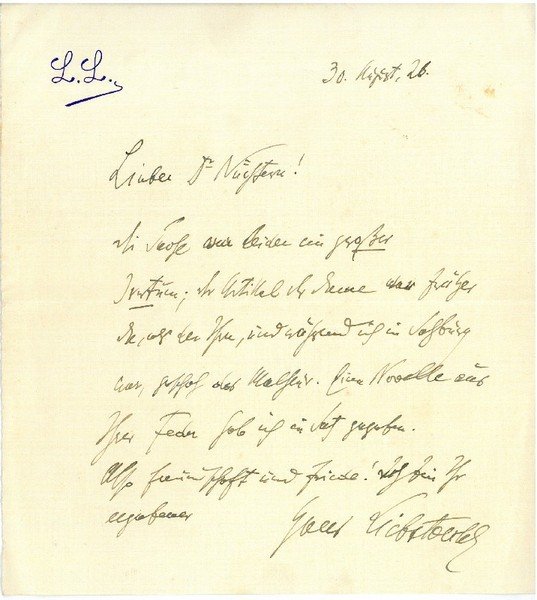 L.L.
30. August, 26.
Lieber Dr Nüchtern!
die Sache war leider ein großer
Irrtum; der Artikel der Dame war früher
da, als der Ihre, und während ich in Salzburg
war, geschah das Malheur. Eine Novelle aus
Ihrer Feder hab ich in Satz gegeben.
Also Freundschaft und Friede! Ich bin Ihr
ergebener Hans Liebstoeckl